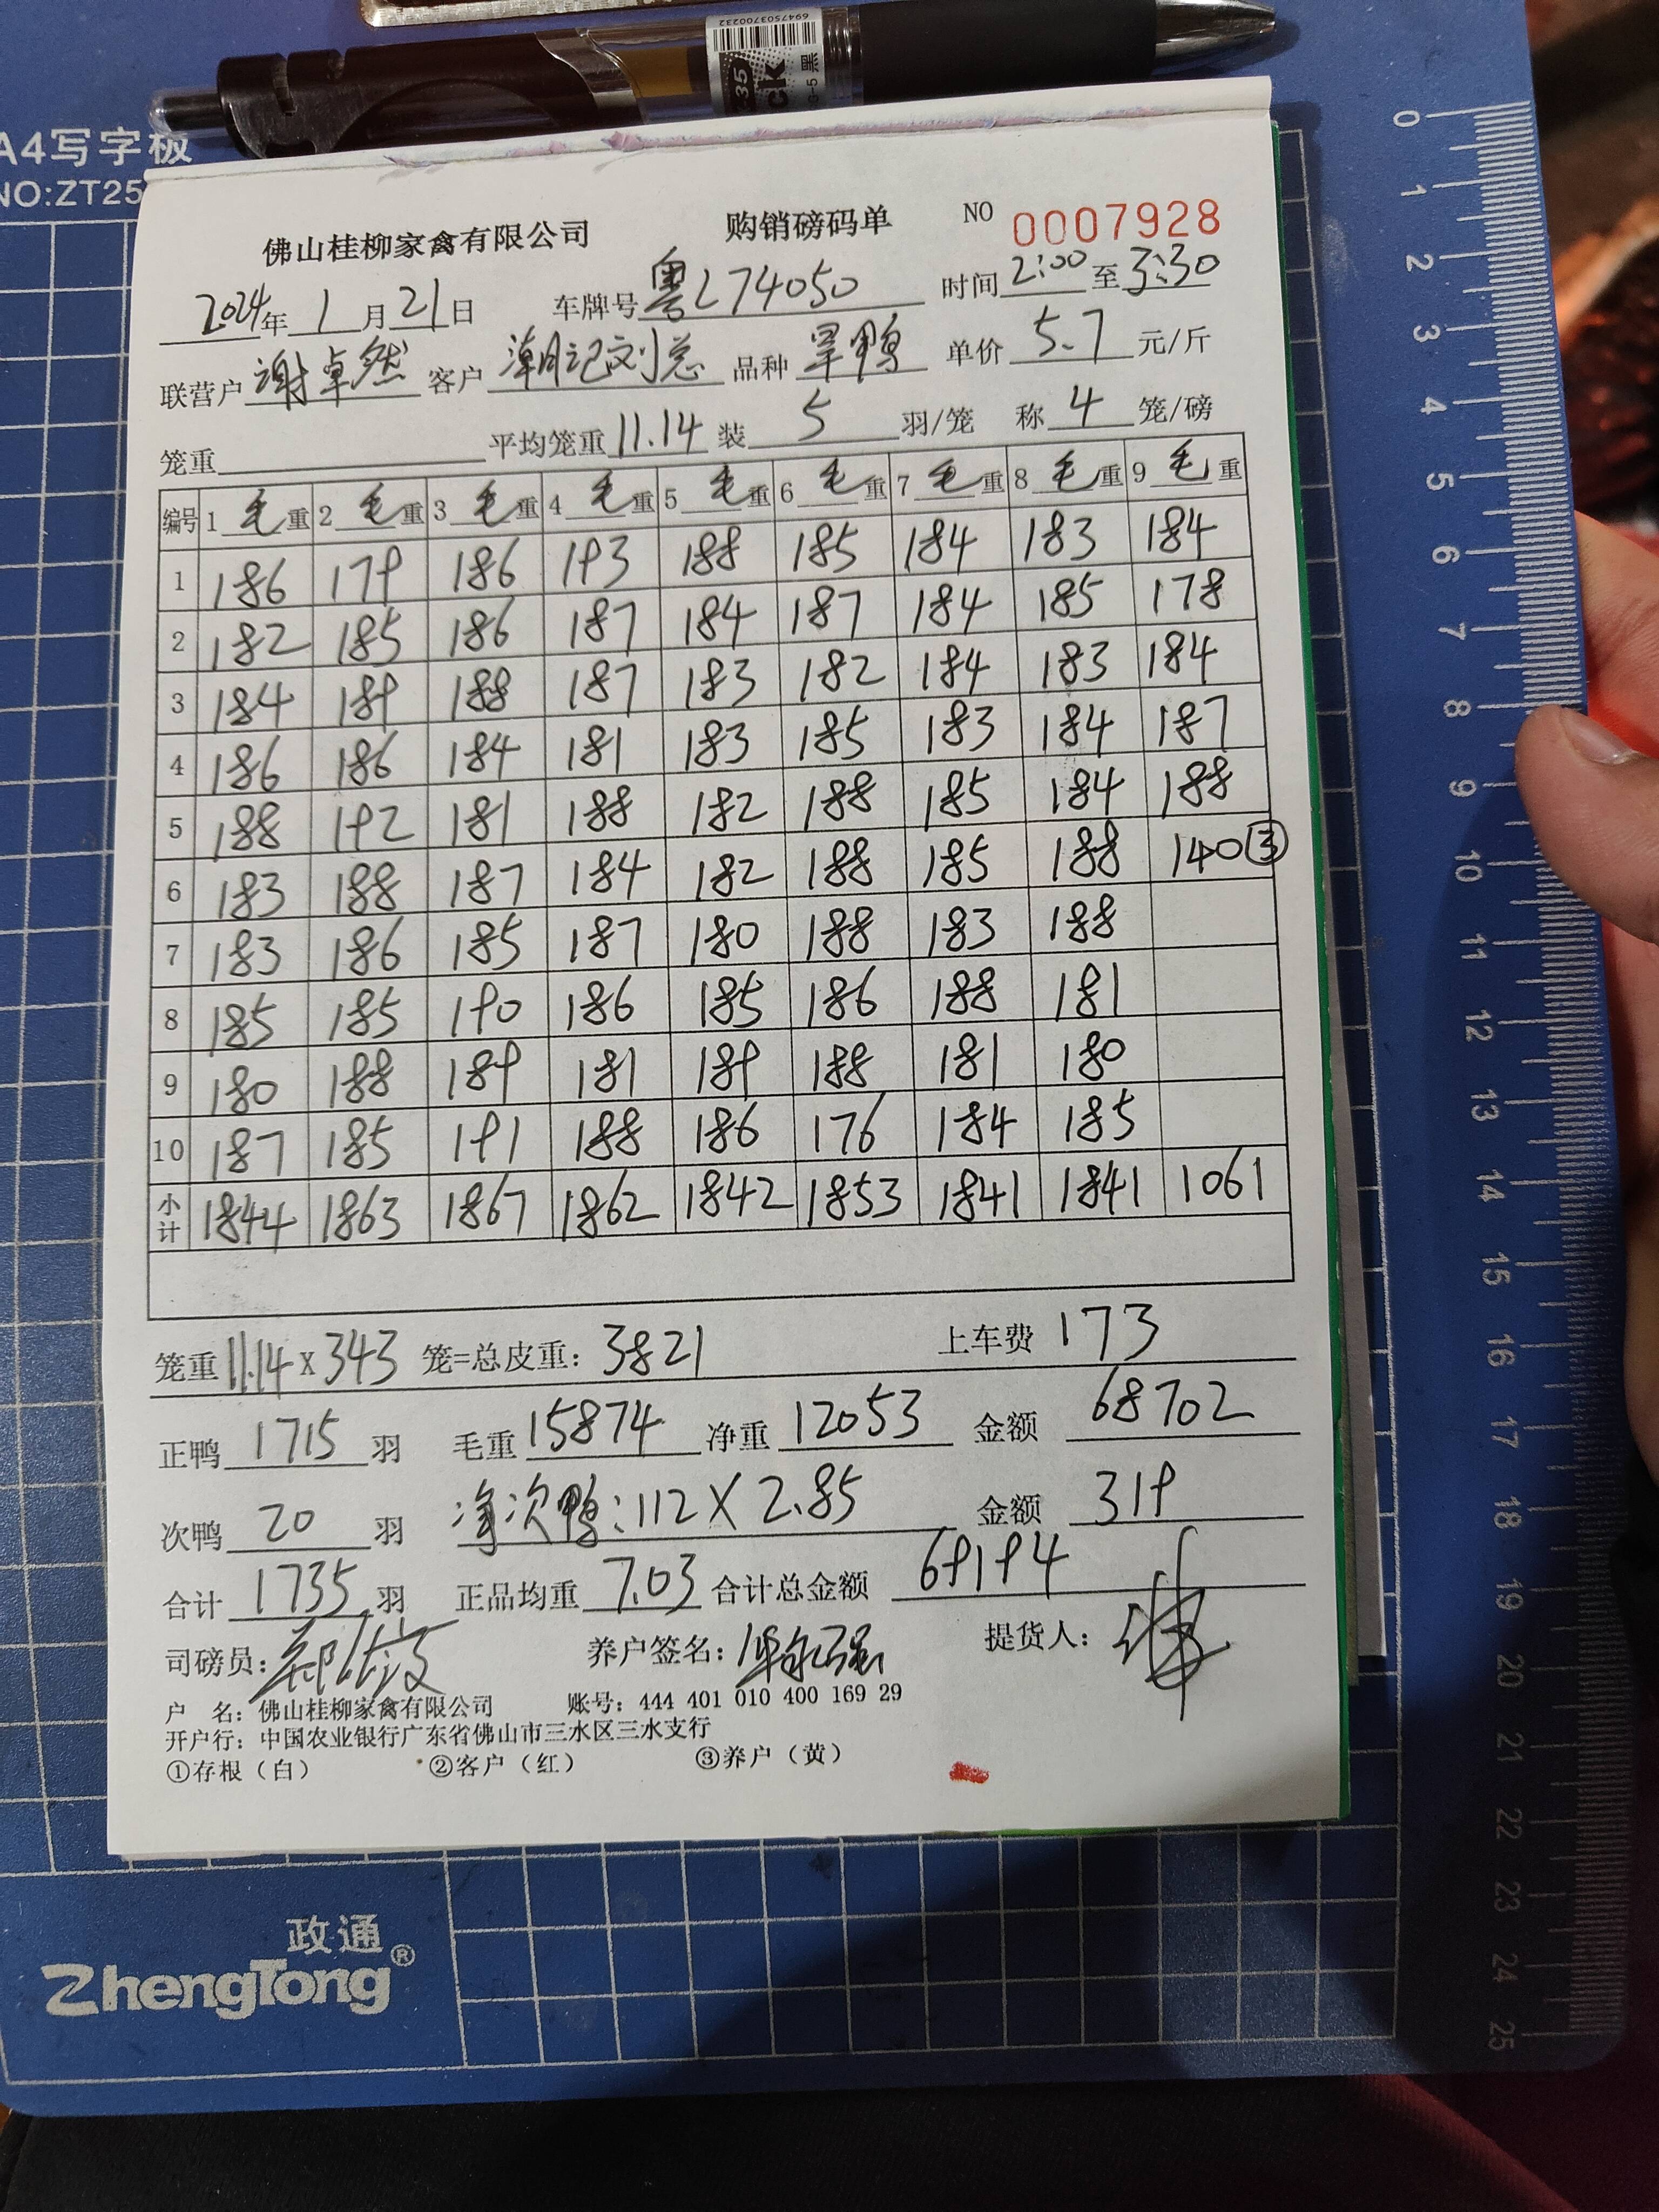 6947503700232
-35
CK
G-5 黑
A4写字板
NO:ZT25
佛山桂柳家禽有限公司 购销磅码单 NO 0007928
2024年1月21日 车牌号粤L74050 时间2:00至3:30
联营户谢卓然 客户潮记刘总 品种旱鸭 单价5.7元/斤
笼重 平均笼重11.14 装5羽/笼 称4笼/磅
编号 1毛重 2毛重 3毛重 4毛重 5毛重 6毛重 7毛重 8毛重 9毛重
1 186 179 186 193 188 185 184 183 184
2 182 185 186 187 184 187 184 185 178
3 184 189 188 187 183 182 184 183 184
4 186 186 184 181 183 185 183 184 187
5 188 192 181 188 182 188 185 184 188
6 183 188 187 184 182 188 185 188 140③
7 183 186 185 187 180 188 183 188
8 185 185 190 186 185 186 188 181
9 180 188 189 181 189 188 181 180
10 187 185 191 188 186 176 184 185
小计 1844 1863 1867 1862 1842 1853 1841 1841 1061
笼重11.14x343笼=总皮重：3821 上车费173
正鸭1715羽 毛重15874 净重12053 金额68702
次鸭20羽 净次鸭:112X2.85 金额319
合计1735羽 正品均重7.03 合计总金额69194
司磅员： 养户签名： 提货人：
户 名：佛山桂柳家禽有限公司 账号：444 401 010 400 169 29
开户行：中国农业银行广东省佛山市三水区三水支行
①存根（白） ②客户（红） ③养户（黄）
政通®
ZhengTong
0
1
2
3
4
5
6
7
8
9
10
11
12
13
14
15
16
17
18
19
20
21
22
23
24
25